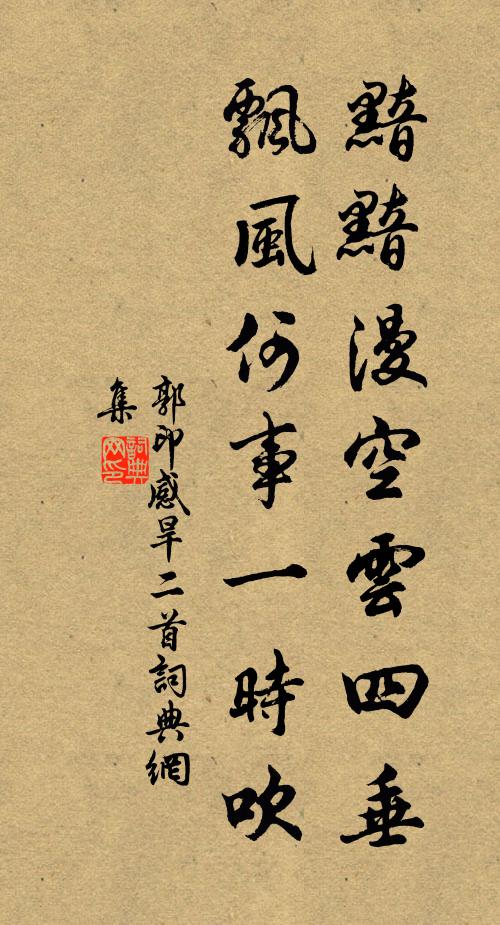 黯黯漫空雲四垂
飄風何事一時吹
郭印感旱二首詞典網
集
詞典网印